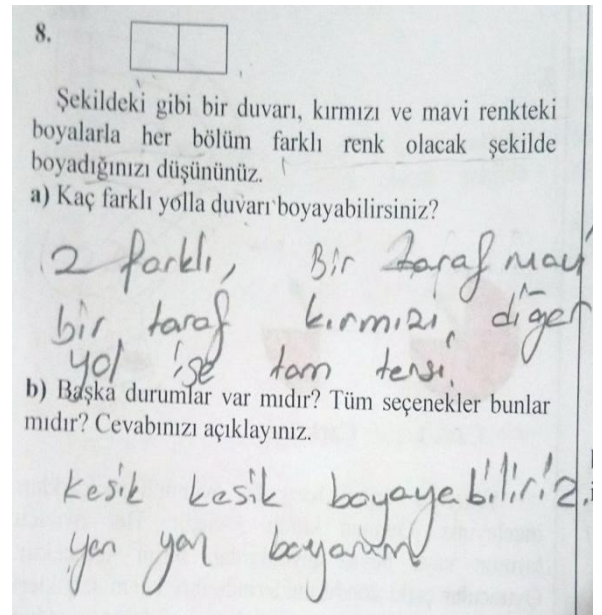 8.
Şekildeki gibi bir duvarı, kırmızı ve mavi renkteki
boyalarla her bölüm farklı renk olacak şekilde
boyadığınızı düşününüz.
a) Kaç farklı yolla duvarı boyayabilirsiniz?
2 farklı, Bir taraf mavi
bir taraf kırmızı, diğer
yol ise tam tersi.
b) Başka durumlar var mıdır? Tüm seçenekler bunlar
mıdır? Cevabınızı açıklayınız.
kesik kesik boyayabiliriz,
yan yan boyarım